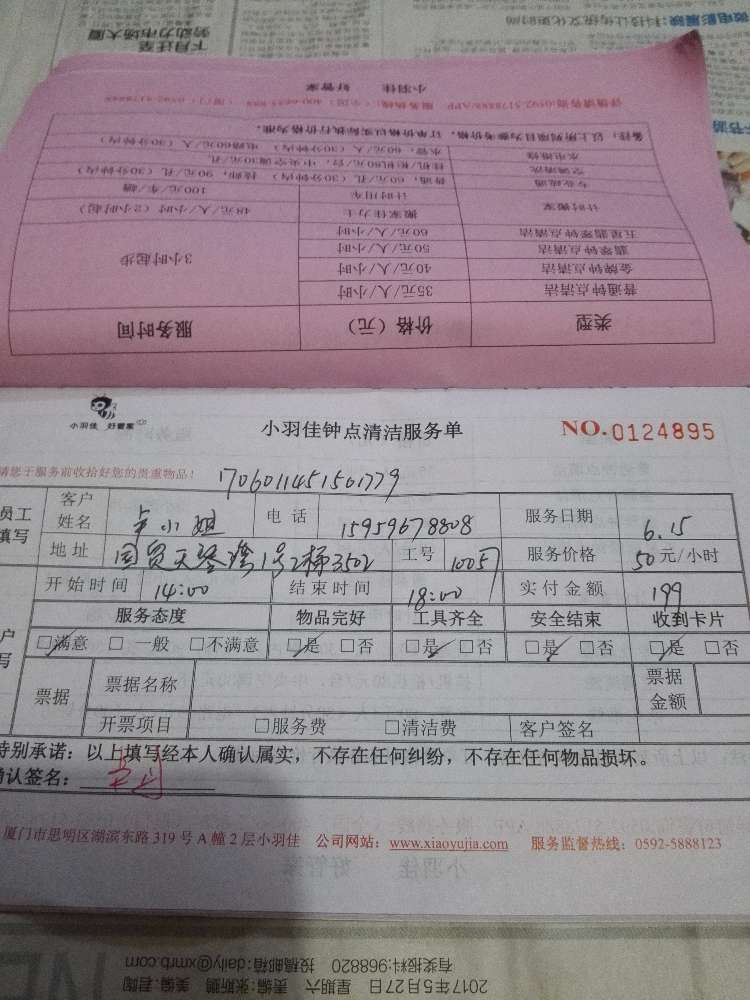 下月迁至
劳动力市场大厦
小羽佳 好管家
备注：以上所列项目为参考价格，订单价格以实际执行价格为准。
水电维修 水管，60元/人（30分钟内） 电路60元/人（30分钟内）
空调清洗 挂机/柜机60元/台，中央空调30元/孔
专业疏通 普通，60元/孔（30分钟内） 技师，90元/孔（30分钟内）
计时搬家 计时用车 100元/车/趟
搬家佳力士 48元/人/小时（2小时起）
五星翡翠钟点清洁 60元/人/小时 3小时起步
翡翠钟点清洁 50元/人/小时
金牌钟点清洁 40元/人/小时
普通钟点清洁 35元/人/小时
类型 价格（元） 服务时间
小羽佳 好管家
小羽佳钟点清洁服务单
NO.0124895
请您于服务前收拾好您的贵重物品！
1706011451501779
员工填写 客户姓名 卢小姐 电话 15959678808 服务日期 6.15
地址 国贸天琴湾1号2梯3502 工号 服务价格 50元/小时
开始时间 14:00 结束时间 18:00 实付金额 199
服务态度 物品完好 工具齐全 安全结束 收到卡片
□满意 □一般 □不满意 □是 □否 □是 □否 □是 □否 □是 □否
票据 票据名称 票据金额
开票项目 □服务费 □清洁费 客户签名
特别承诺：以上填写经本人确认属实，不存在任何纠纷，不存在任何物品损坏。
确认签名：
厦门市思明区湖滨东路319号A幢2层小羽佳 公司网站：www.xiaoyujia.com 服务监督热线：0592-5888123
有奖报料:968820 投稿邮箱:daily@xmrb.com
2017年5月27日 星期六